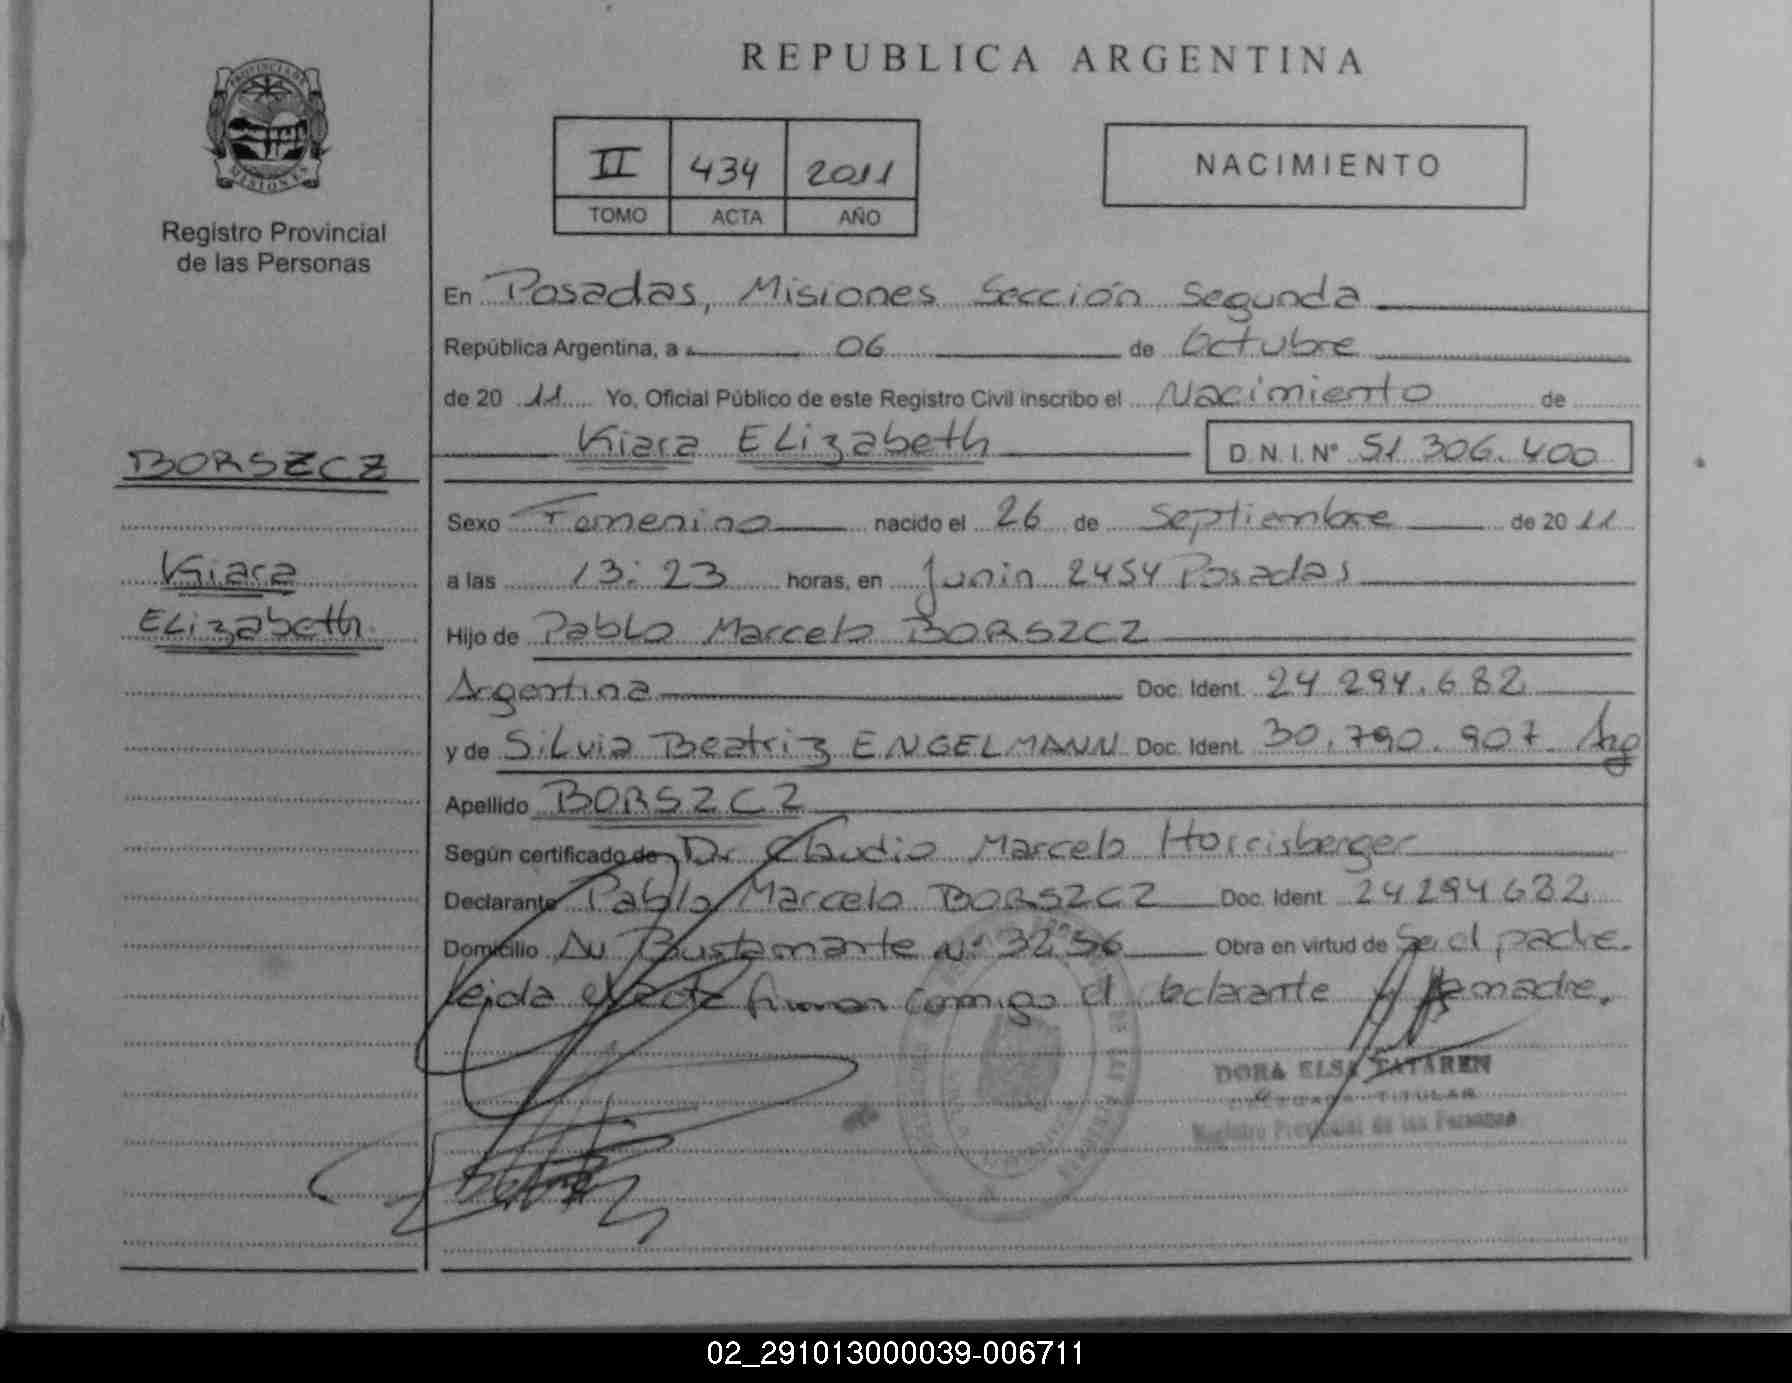 REPUBLICA ARGENTINA
PROVINCIA DE
MISIONES
Registro Provincial
de las Personas
II 434 2011
TOMO ACTA AÑO
NACIMIENTO
En Posadas, Misiones Sección Segunda
República Argentina, a 06 de Octubre
de 20 11 Yo, Oficial Público de este Registro Civil inscribo el Nacimiento de
Kiara ELizabeth D.N.I. Nº 51.306.400
BORSZCZ
Kiara
ELizabeth
Sexo Femenino nacido el 26 de Septiembre de 20 11
a las 13:23 horas, en Junin 2454 Posadas
Hijo de PabLo Marcelo BORSZCZ
Argentina Doc. Ident. 24.294.682
y de SiLvia Beatriz ENGELMANN Doc. Ident. 30.790.907 Arg
Apellido BORSZCZ
Según certificado de Dr Claudio Marcelo Horrisberger
Declarante Pablo Marcelo BORSZCZ Doc. Ident. 24294682
Domicilio Av Bustamante Nº 3256 Obra en virtud de Ser el padre.
Leida el acta firman conmigo el declarante y la madre.
DORA ELSA TATAREN
DELEGADA TITULAR
Registro Provincial de las Personas
02_291013000039-006711